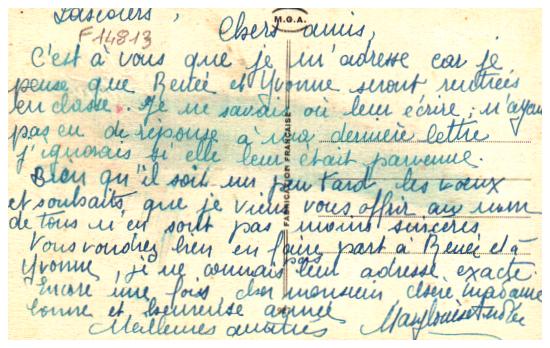 Lascours,
M.G.A.
F14813
Chers amis,
C'est à vous que je m'adresse car je
pense que Renée et Yvonne seront rentrées
en classe. Je ne savais où leur écrire, n'ayant
pas eu de réponse à ma dernière lettre
j'ignorais si elle leur était parvenue.
Bien qu'il soit un peu tard, les vœux
et souhaits que je viens vous offrir au nom
de tous n'en sont pas moins sincères.
Vous voudrez bien en faire part à Renée et à
Yvonne, je ne connais pas leur adresse exacte
Encore une fois, cher monsieur chère madame
bonne et heureuse année
Meilleures amitiés
FABRICATION FRANÇAISE